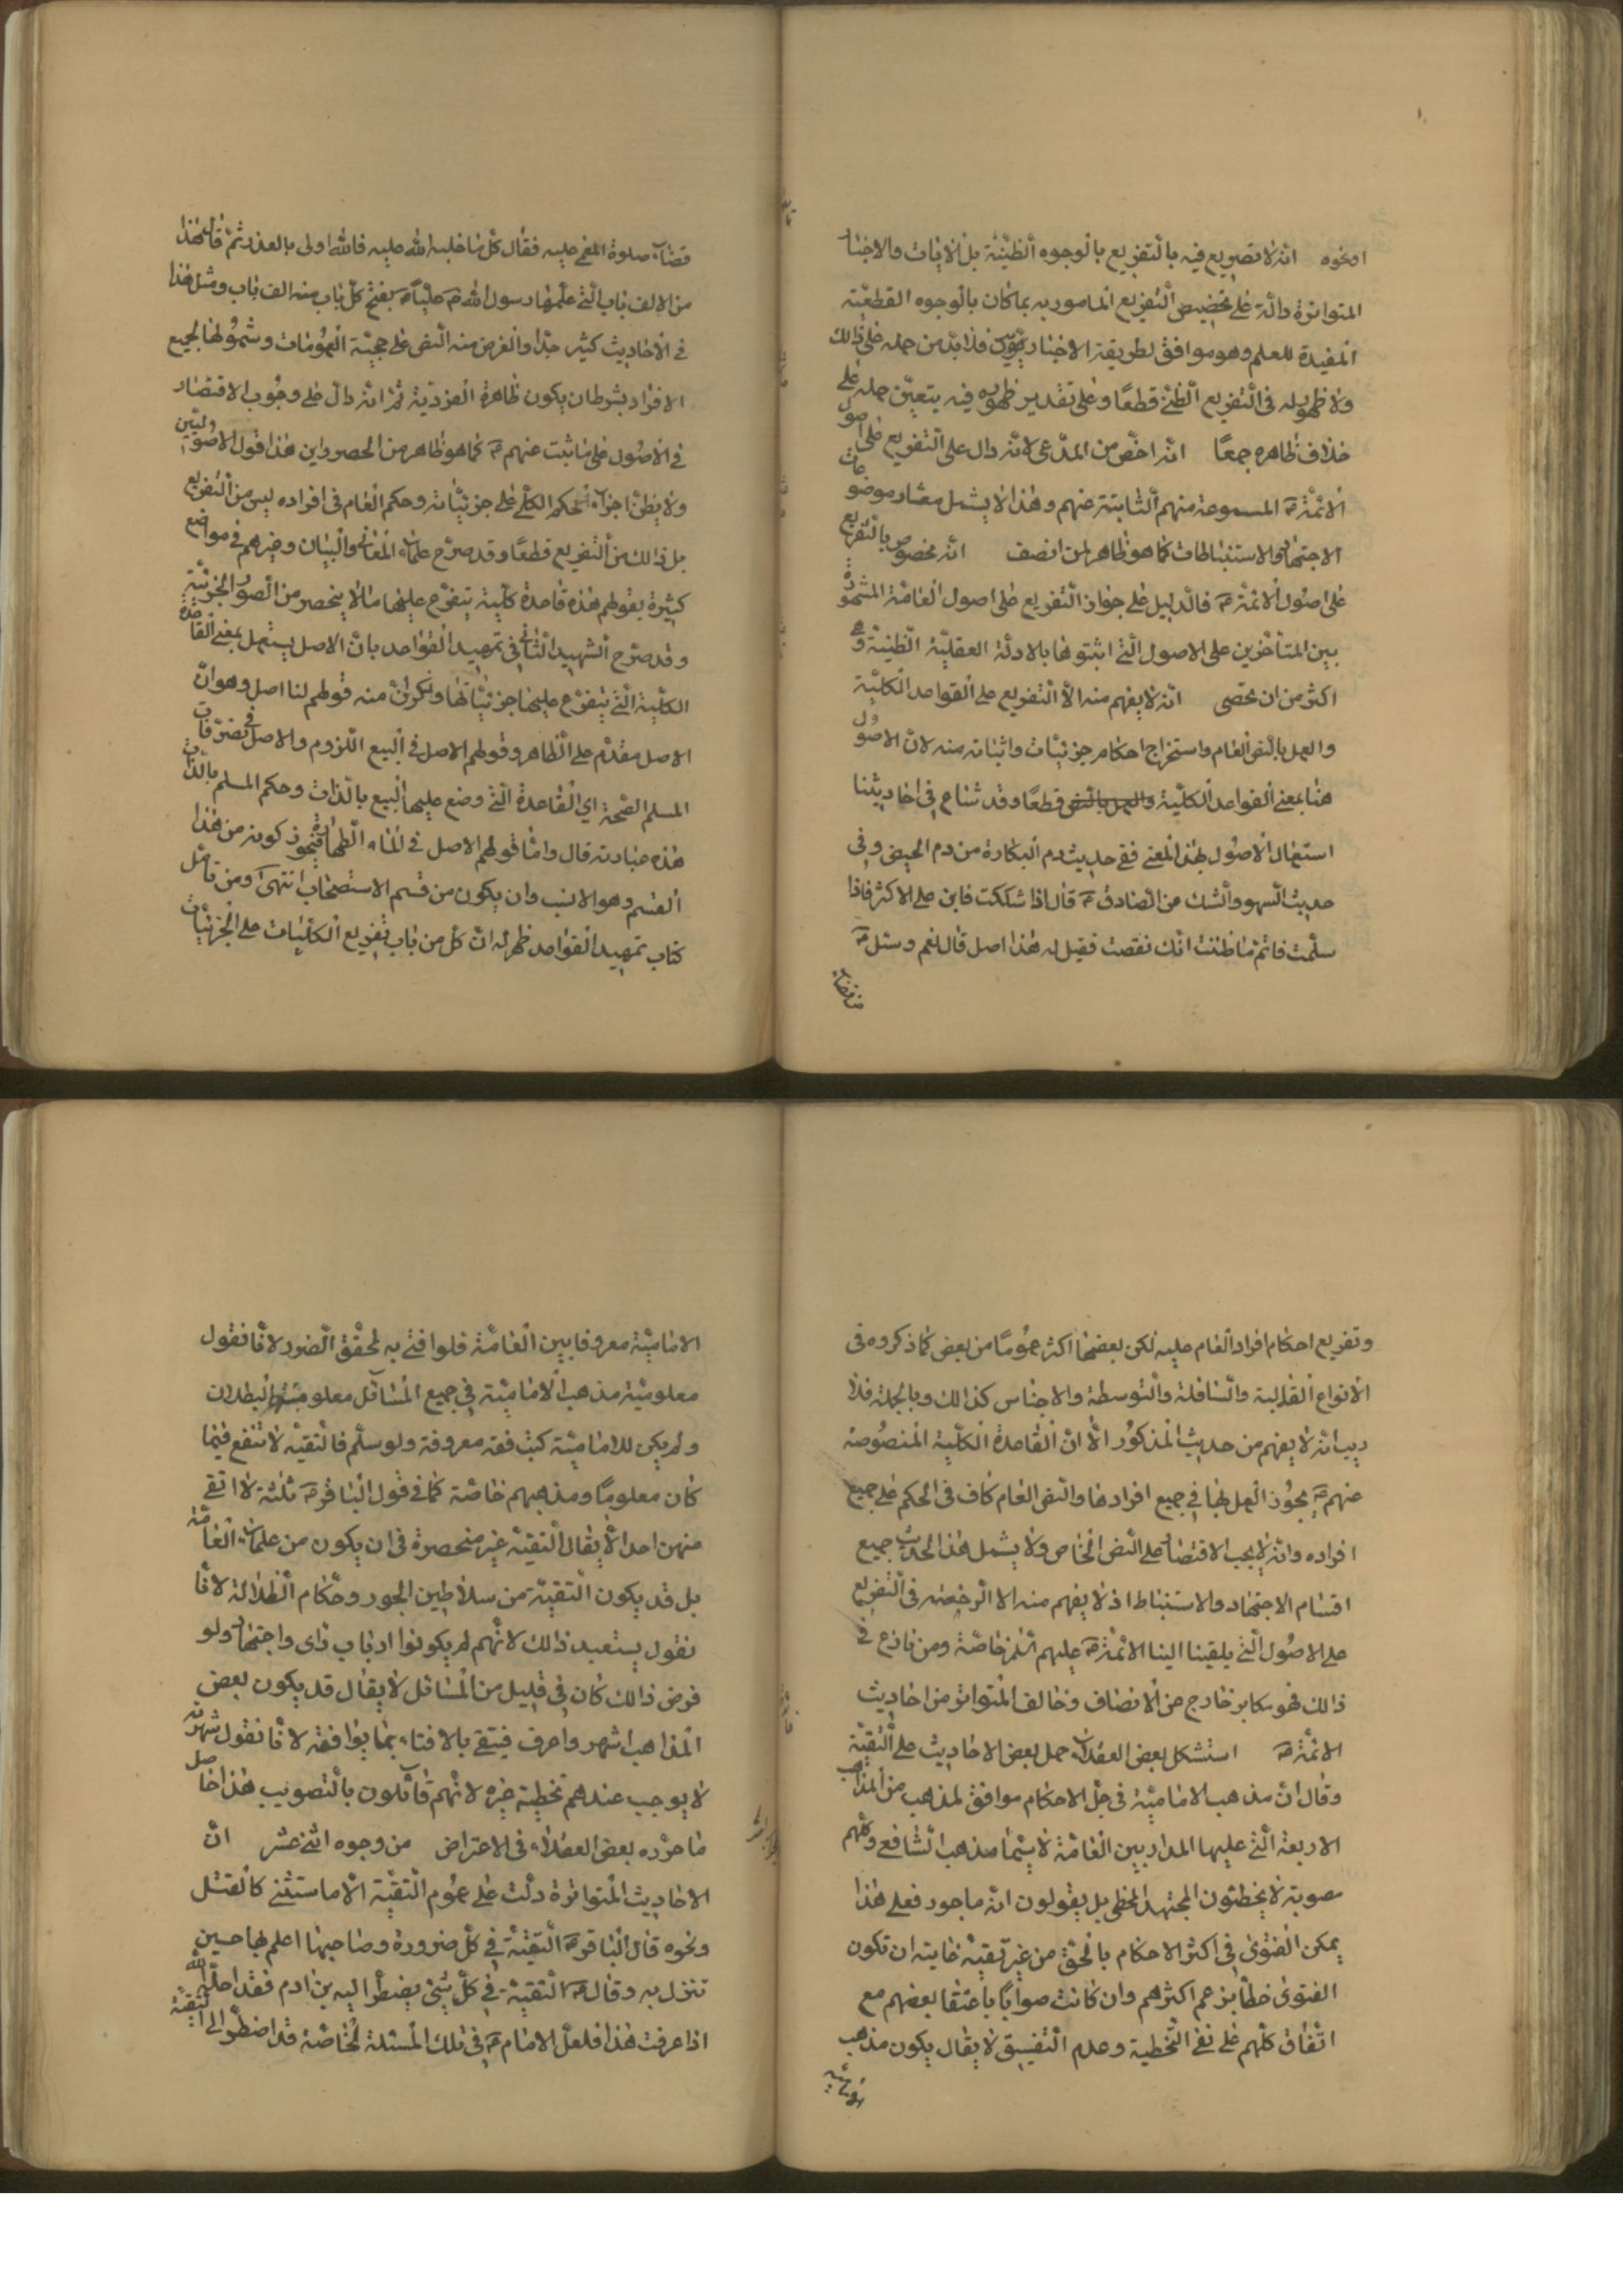 او نحوه انه لا تصريح فيه بالتفريع بالوجوه الظنّيّة بل الايات والاخبار
المتواترة دالّة على تخصيص التفريع المامور به بما كان بالوجوه القطعيّة
المفيدة للعلم وهو موافق لطريقة الاخباريّين فلا بدّ من حمله على ذلك
ولا ظهور له فى التفريع الظنّى قطعًا وعلى تقدير ظهوره فيه يتعيّن حمله على
خلاف ظاهره جمعًا انه اخصّ من المدّعى لانّه دال على التفريع على اصول
الائمّة المسموعة منهم الثابتة عنهم وهذا لا يشمل معشار موضوعات
الاجتهاد والاستنباطات كما هو ظاهر لمن انصف انه مخصوص بالتفريع
على اصول الائمة فالدليل على جواز التفريع على اصول العامّة المشهورة
بين المتاخّرين على الاصول الّتى اثبتوها بالادلّة العقليّة الظنيّة وهى
اكثر من ان تحصى انّه لا يفهم منه الّا التفريع على القواعد الكليّة
والعمل بالنص العام واستخراج احكام جزئيات واثباته منه لانّ الاصول
هنا بمعنى القواعد الكليّة والعمل بالنص قطعًا وقد شاع فى احاديثنا
استعمال الاصول بهذا المعنى ففى حديث دم البكارة من دم الحيض وفى
حديث السهو والشك عن الصادق قال اذا شككت فابن على الاكثر فاذا
سلّمت فاتمّ ما ظننت انّك نقصت فقيل له هذا اصل قال نعم وسئل
عن قضاء
قضاء صلوة المغمى عليه فقال كلّ ما غلب الله عليه فالله اولى بالعذر ثمّ قال هذا
من الالف باب الّتى علّمها رسول الله عليّا يفتح كلّ باب منه الف باب ومثل هذا
فى الاحاديث كثير جدّا والغرض منه النص على حجيّة العمومات وشمولها لجميع
الافراد بشرط ان يكون ظاهرة الفرديّة ثم انه دالّ على وجوب الاقتصار
فى الاصول على ما ثبت عنهم كما هو ظاهر من الحصر واين هذا من قول الاصوليّين
ولا يظنّ اجراء الحكم الكلّى على جزئيّاته وحكم العام فى افراده ليس من التفريع
بل ذلك من التفريع قطعًا وقد صرّح علماء المعانى والبيان وغيرهم فى مواضع
كثيرة بقولهم هذه قاعدة كليّة يتفرّع عليها ما لا ينحصر من الصور الجزئيّة
وقد صرّح الشهيد الثانى فى تمهيد القواعد بانّ الاصل يستعمل بمعنى القاعدة
الكليّة الّتى يتفرّع عليها جزئيّاتها وذكر انّ منه قولهم لنا اصل وهو انّ
الاصل مقدّم على الظاهر وقولهم الاصل فى البيع اللزوم والاصل فى تصرّفات
المسلم الصّحة اى القاعدة الّتى وضع عليها البيع بالذّات وحكم المسلم بالذّات
هذه عبارته قال وامّا قولهم الاصل فى الماء الطهارة فيجوز كونه من هذا
القسم وهو الانسب وان يكون من قسم الاستصحاب انتهى ومن تامّل
كتاب تمهيد القواعد ظهر له انّ كلّ من باب تفريع الكليّات على الجزئيّات
وتفريع احكام افراد العام عليه لكن بعضها اكثر عمومًا من بعض كما ذكروه فى
الانواع العالية والسافلة والمتوسطة والاجناس كذلك وبالجملة فلا
ريب انّه لا يفهم من حديث المذكور الّا انّ القاعدة الكليّة المنصوصة
عنهم يجوز العمل بها فى جميع افرادها والنص العام كاف فى الحكم على جميع
افراده وانّه لا يجب الاقتصار على النص الخاص ولا يشمل هذا الحديث جميع
اقسام الاجتهاد والاستنباط اذ لا يفهم منه الا الرخصة فى التفريع
على الاصول الّتى يلقيها الينا الائمّة عليهم السّلم خاصّة ومن نازع فى
ذلك فهو مكابر خارج عن الانصاف وخالف المتواتر من احاديث
الائمّة استشكل بعض الفضلاء حمل بعض الاحاديث على التقيّة
وقال انّ مذهب الاماميّة فى جلّ الاحكام موافق لمذهب من المذاهب
الاربعة الّتى عليها المدار بين العامّة لا سيّما مذهب الشافعى وكلّهم
مصوبة لا يخطئون المجتهد المخطى بل يقولون انّه ماجور فعلى هذا
يمكن الفتوى فى اكثر الاحكام بالحقّ من غير تقيّة غايته ان تكون
الفتوى خطأ بزعم اكثرهم وان كانت صوابًا باعتقاد بعضهم مع
اتّفاق كلّهم على نفى التخطية وعدم التفسيق لا يقال يكون مذهب
الاماميّة
الاماميّة معروفا بين العامّة فلو افتى به لتحقّق الضرر لانّا نقول
معلوميّة مذهب الاماميّة فى جميع المسائل معلومة البطلان
ولم يكن للاماميّة كتب فقه معروفة ولو سلّم فالتقيّة لا تنفع فيما
كان معلومًا ومذهبهم خاصّة كما فى قول الباقر ثلثة لا اتقى
منهن احدا لا يقال التقيّة غير منحصرة فى ان يكون من علماء العامّة
بل قد يكون التقيّة من سلاطين الجور وحكام الظلالة لانّا
نقول يستبعد ذلك لانّهم لم يكونوا ارباب راى واجتهاد ولو
فرض ذلك كان فى قليل من المسائل لا يقال قد يكون بعض
المذاهب اشهر واعرف فيتقى بالافتاء بما يوافقه لانّا نقول شهرته
لا يوجب عندهم تخطية غيره لانّهم قائلون بالتصويب هذا حاصل
ما حرّره بعض الفضلاء فى الاعتراض من وجوه اثنى عشر انّ
الاحاديث المتواترة دلّت على عموم التقيّة الّا ما استثنى كالقتل
ونحوه قال الباقر التقيّة فى كلّ ضرورة وصاحبها اعلم بها حين
تنزل به وقال التقيّة فى كلّ شىء يضطرّ اليه بن ادم فقد احلّه الله
اذا عرفت هذا فلعلّ الامام فى تلك المسئلة الخاصّة قد اضطرّ الى التقيّة